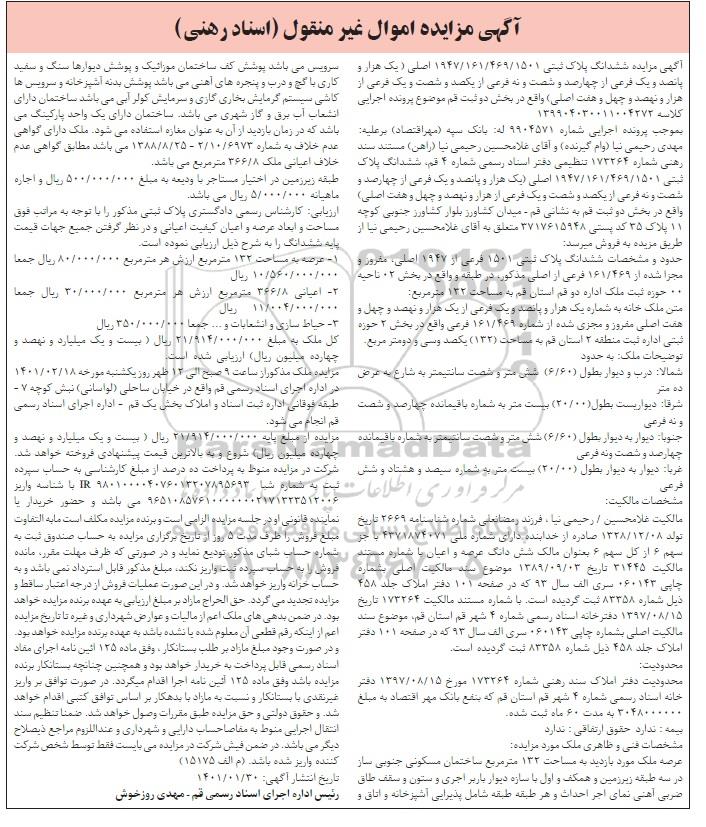 آگهی مزایده اموال غیر منقول (اسناد رهنی)
آگهی مزایده ششدانگ پلاک ثبتی ۱۹۴۷/۱۶۱/۴۶۹/۱۵۰۱ اصلی ( یک هزار و
پانصد و یک فرعی از چهارصد و شصت و نه فرعی از یکصد و شصت و یک فرعی از
هزار و نهصد و چهل و هفت اصلی) واقع در بخش دو ثبت قم موضوع پرونده اجرایی
کلاسه ۱۳۹۹۰۴۰۳۰۰۱۱۰۰۴۲۷۲
بموجب پرونده اجرایی شماره ۹۹۰۴۵۷۱ له: بانک سپه (مهراقتصاد) برعلیه:
مهدی رحیمی نیا (وام گیرنده) و آقای غلامحسین رحیمی نیا (راهن) مستند سند
رهنی شماره ۱۷۳۲۶۴ تنظیمی دفتر اسناد رسمی شماره ۴ قم، ششدانگ پلاک
ثبتی ۱۹۴۷/۱۶۱/۴۶۹/۱۵۰۱ اصلی (یک هزار و پانصد و یک فرعی از چهارصد و
شصت و نه فرعی از یکصد و شصت و یک فرعی از هزار و نهصد و چهل و هفت اصلی)
واقع در بخش دو ثبت قم به نشانی قم - میدان کشاورز بلوار کشاورز جنوبی کوچه
۱۱ پلاک ۳۵ کد پستی ۳۷۱۷۶۱۵۹۴۸ متعلق به آقای غلامحسین رحیمی نیا از
طریق مزایده به فروش میرسد:
حدود و مشخصات ششدانگ پلاک ثبتی ۱۵۰۱ فرعی از ۱۹۴۷ اصلی، مفروز و
مجزا شده از ۱۶۱/۴۶۹ فرعی از اصلی مذکور، در طبقه و واقع در بخش ۰۲ ناحیه
۰۰ حوزه ثبت ملک اداره دو قم استان قم به مساحت ۱۳۲ مترمربع:
متن ملک خانه به شماره یک هزار و پانصد و یک فرعی از یک هزار و نهصد و چهل و
هفت اصلی مفروز و مجزی شده از شماره ۱۶۱/۴۶۹ فرعی واقع در بخش ۲ حوزه
ثبتی اداره ثبت منطقه ۲ استان قم به مساحت (۱۳۲) یکصد وسی و دومتر مربع.
توضیحات ملک: به حدود
شمالا: درب و دیوار بطول (۶/۶۰) شش متر و شصت سانتیمتر به شارع به عرض
ده متر
شرقا: دیواریست بطول(۲۰/۰۰) بیست متر به شماره باقیمانده چهارصد و شصت
و نه فرعی
جنوبا: دیوار به دیوار بطول (۶/۶۰) شش متر و شصت سانتیمتر به شماره باقیمانده
چهارصد و شصت ونه فرعی
غربا: دیوار به دیوار بطول (۲۰/۰۰) بیست متر به شماره سیصد و هشتاد و شش
فرعی
مشخصات مالکیت:
مالکیت غلامحسین / رحیمی نیا ، فرزند رمضانعلی شماره شناسنامه ۲۶۶۹ تاریخ
تولد ۱۳۲۸/۱۲/۰۸ صادره از خدابنده دارای شماره ملی ۴۳۷۱۸۷۴۰۷۱ با جز
سهم ۶ از کل سهم ۶ بعنوان مالک شش دانگ عرصه و اعیان با شماره مستند
مالکیت ۳۱۴۴۵ تاریخ ۱۳۸۹/۰۹/۰۳ موضوع سند مالکیت اصلی بشماره
چاپی ۰۶۰۱۴۳ سری الف سال ۹۳ که در صفحه ۱۰۱ دفتر املاک جلد ۴۵۸
ذیل شماره ۸۳۳۵۸ ثبت گردیده است. با شماره مستند مالکیت ۱۷۳۲۶۴ تاریخ
۱۳۹۷/۰۸/۱۵ دفترخانه اسناد رسمی شماره ۴ شهر قم استان قم، موضوع سند
مالکیت اصلی بشماره چاپی ۰۶۰۱۴۳ سری الف سال ۹۳ که در صفحه ۱۰۱ دفتر
املاک جلد ۴۵۸ ذیل شماره ۸۳۳۵۸ ثبت گردیده است.
محدودیت:
محدودیت دفتر املاک سند رهنی شماره ۱۷۳۲۶۴ مورخ ۱۳۹۷/۰۸/۱۵ دفتر
خانه اسناد رسمی شماره ۴ شهر قم استان قم که بنفع بانک مهر اقتصاد به مبلغ
۳۰۴۸۰۰۰۰۰۰ به مدت ۶۰ ماه ثبت شده.
بیمه : ندارد حقوق ارتفاقی : ندارد
مشخصات فنی و ظاهری ملک مورد مزایده:
عرصه ملک مورد بازدید به مساحت ۱۳۲ مترمربع ساختمان مسکونی جنوبی ساز
در سه طبقه زیرزمین و همکف و اول با سازه دیوار باربر اجری و ستون و سقف طاق
ضربی آهنی نمای اجر احداث و هر طبقه طبقه شامل پذیرایی آشپزخانه و اتاق و
سرویس می باشد پوشش کف ساختمان موزائیک و پوشش دیوارها سنگ و سفید
کاری با گچ و درب و پنجره های آهنی می باشد پوشش بدنه آشپزخانه و سرویس ها
کاشی سیستم گرمایش بخاری گازی و سرمایش کولر آبی می باشد ساختمان دارای
انشعاب آب برق و گاز شهری می باشد. ساختمان دارای یک واحد پارکینگ می
باشد که در زمان بازدید از آن به عنوان مغازه استفاده می شود. ملک دارای گواهی
عدم خلاف به شماره ۲/۱۰/۶۹۷۳ - ۱۳۸۸/۸/۲۵ می باشد مطابق گواهی عدم
خلاف اعیانی ملک ۳۶۶/۸ مترمربع می باشد.
طبقه زیرزمین در اختیار مستاجر با ودیعه به مبلغ ۵۰۰/۰۰۰/۰۰۰ ریال و اجاره
ماهیانه ۵/۰۰۰/۰۰۰ ریال می باشد.
ارزیابی: کارشناس رسمی دادگستری پلاک ثبتی مذکور را با توجه به مراتب فوق
مساحت و ابعاد عرصه و اعیان کیفیت اعیانی و در نظر گرفتن جمیع جهات قیمت
پایه ششدانگ را به شرح ذیل ارزیابی نموده است.
۱- عرصه به مساحت ۱۳۲ مترمربع ارزش هر مترمربع ۸۰/۰۰۰/۰۰۰ ریال جمعا
۱۰/۵۶۰/۰۰۰/۰۰۰ ریال
۲- اعیانی ۳۶۶/۸ مترمربع ارزش هر مترمربع ۳۰/۰۰۰/۰۰۰ ریال جمعا
۱۱/۰۰۴/۰۰۰/۰۰۰ ریال
۳- حیاط سازی و انشعابات و ... جمعا ۳۵۰/۰۰۰/۰۰۰ ریال
کل ملک به مبلغ ۲۱/۹۱۴/۰۰۰/۰۰۰ ریال ( بیست و یک میلیارد و نهصد و
چهارده میلیون ریال) ارزیابی شده است.
مزایده ملک مذکور از ساعت ۹ صبح الی ۱۲ ظهر روز یکشنبه مورخه ۱۴۰۱/۰۲/۱۸
در اداره اجرای اسناد رسمی قم واقع در خیابان ساحلی (لواسانی) نبش کوچه ۷ -
طبقه فوقانی اداره ثبت اسناد و املاک بخش یک قم - اداره اجرای اسناد رسمی
قم انجام می شود.
مزایده از مبلغ پایه ۲۱/۹۱۴/۰۰۰/۰۰۰ ریال ( بیست و یک میلیارد و نهصد و
چهارده میلیون ریال) شروع و به بالاترین قیمت پیشنهادی فروخته خواهد شد.
شرکت در مزایده منوط به پرداخت ده درصد از مبلغ کارشناسی به حساب سپرده
ثبت به شماره شبا IR ۹۸۰۱۰۰۰۰۴۰۷۶۰۱۳۲۰۷۸۹۵۶۹۳ با شناسه واریز
۹۶۵۱۰۸۵۷۶۱۰۰۰۰۰۰۲۱۷۱۳۲۳۵۱۲۰۰۶ می باشد و حضور خریدار یا
نماینده قانونی او در جلسه مزایده الزامی است و برنده مزایده مکلف است مابه التفاوت
مبلغ فروش را ظرف مدت ۵ روز از تاریخ برگزاری مزایده به حساب صندوق ثبت به
شماره حساب شبای مذکور تودیع نماید و در صورتی که ظرف مهلت مقرر، مانده
فروش را به حساب سپرده ثبت واریز نکند، مبلغ مذکور قابل استرداد نمی باشد و به
حساب خزانه واریز خواهد شد. و در این صورت عملیات فروش از درجه اعتبار ساقط و
مزایده تجدید می گردد. حق الحراج مازاد بر مبلغ ارزیابی به عهده برنده مزایده خواهد
بود. در ضمن بدهی های ملک اعم از مالیات و عوارض شهرداری و غیره تا تاریخ مزایده
اعم از اینکه رقم قطعی آن معلوم شده یا نشده باشد به عهده برنده مزایده خواهد بود.
و در صورت وجود مبلغ مازاد بر طلب بستانکار ، وفق ماده ۱۲۵ ائین نامه اجرای مفاد
اسناد رسمی قابل پرداخت به خریدار خواهد بود و همچنین چنانچه بستانکار برنده
مزایده باشد وفق ماده ۱۲۵ آئین نامه اجرا اقدام میگردد. در صورت توافق بر واریز
غیرنقدی با بستانکار و نسبت به مازاد با بدهکار بر اساس توافق کتبی اقدام خواهد
شد. و حقوق دولتی و حق مزایده طبق مقررات وصول خواهد شد. ضمنا تنظیم سند
انتقال اجرایی منوط به مفاصاحساب دارایی و شهرداری و عنداللزوم مراجع ذیصلاح
دیگر می باشد. در ضمن فیش شرکت در مزایده می بایست فقط توسط شخص شرکت
کننده واریز شده باشد. (م الف ۱۵۱۷۵)
تاریخ انتشار آگهی: ۱۴۰۱/۰۱/۳۰
رئیس اداره اجرای اسناد رسمی قم - مهدی روزخوش